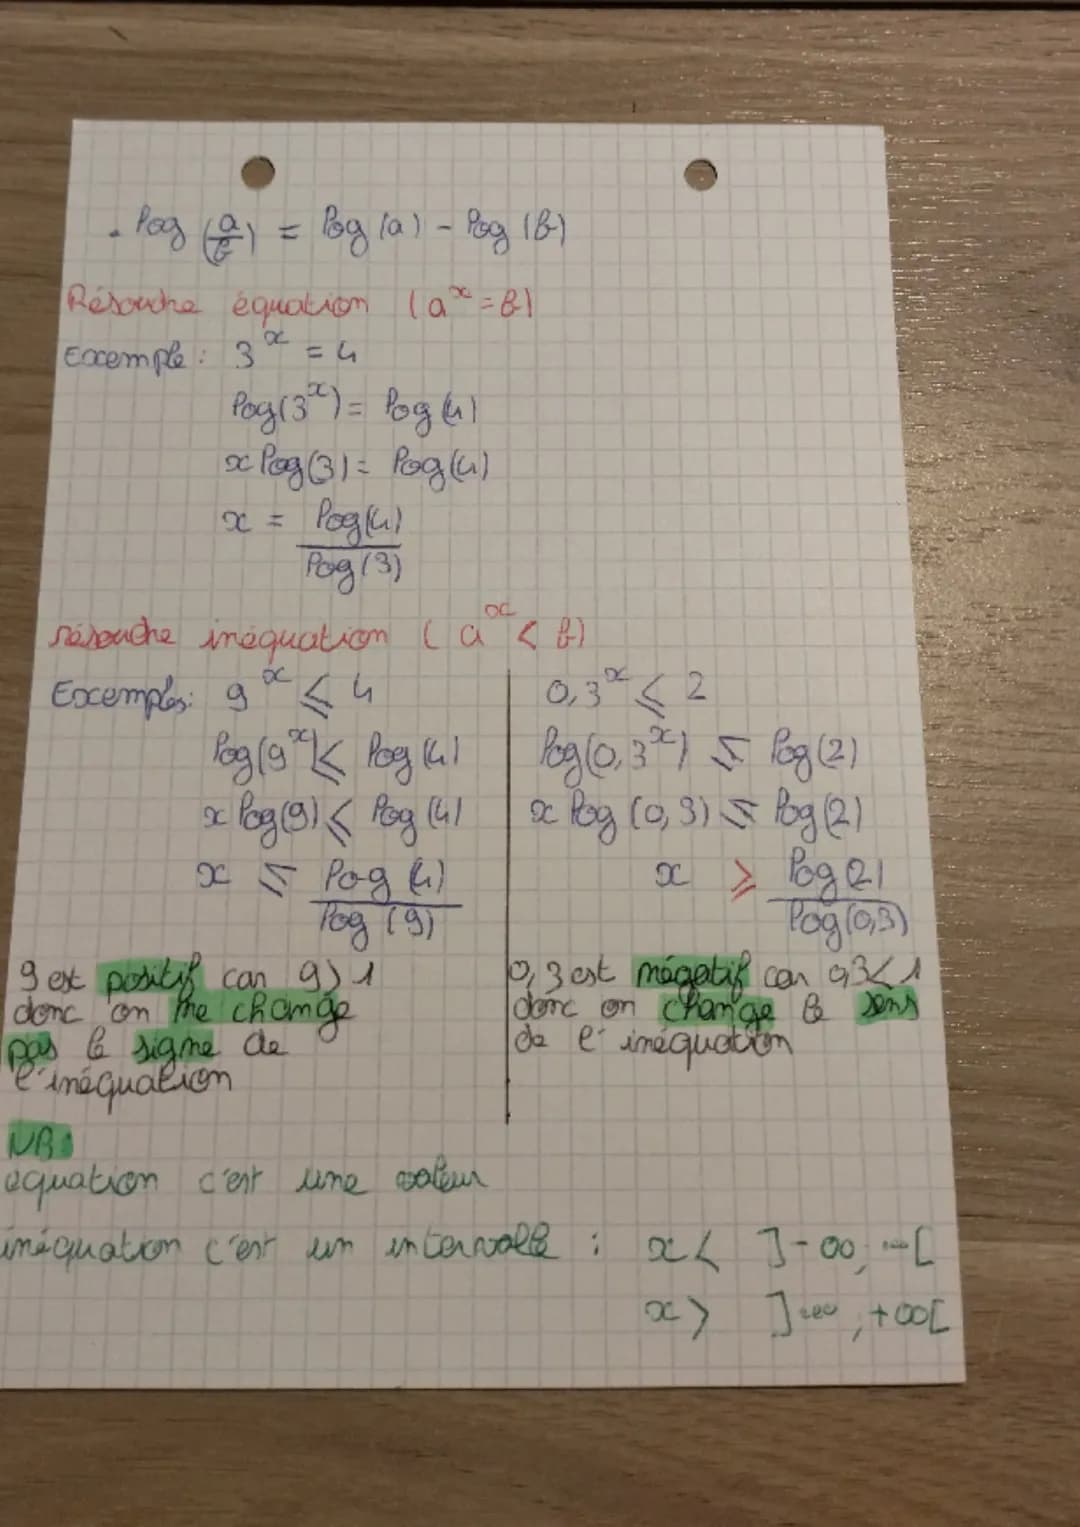 . log (a/b) = log (a) - log (b)
Résoudre équation (a^x = b)
Exemple : 3^x = 4
log(3^x) = log (4)
x log(3) = log(4)
x = log(4)/log(3)
résoudre inéquation ( a^x < b)
Exemples: 9^x ⩽ 4
log(9^x) ⩽ log (4)
x log(9) ⩽ log (4)
x ⩽ log (4)/log (9)
9 est positif car 9 > 1
donc on ne change
pas le signe de
l'inéquation
0,3^x ⩽ 2
log(0,3^x) ⩽ log(2)
x log (0,3) ⩽ log(2)
x ⩾ log(2)/log(0,3)
0,3 est négatif car 0,3 < 1
donc on change le sens
de l'inéquation
NB:
équation c'est une valeur
inéquation c'est un intervalle : x < ]-∞; ...[
x > ]..., +∞[